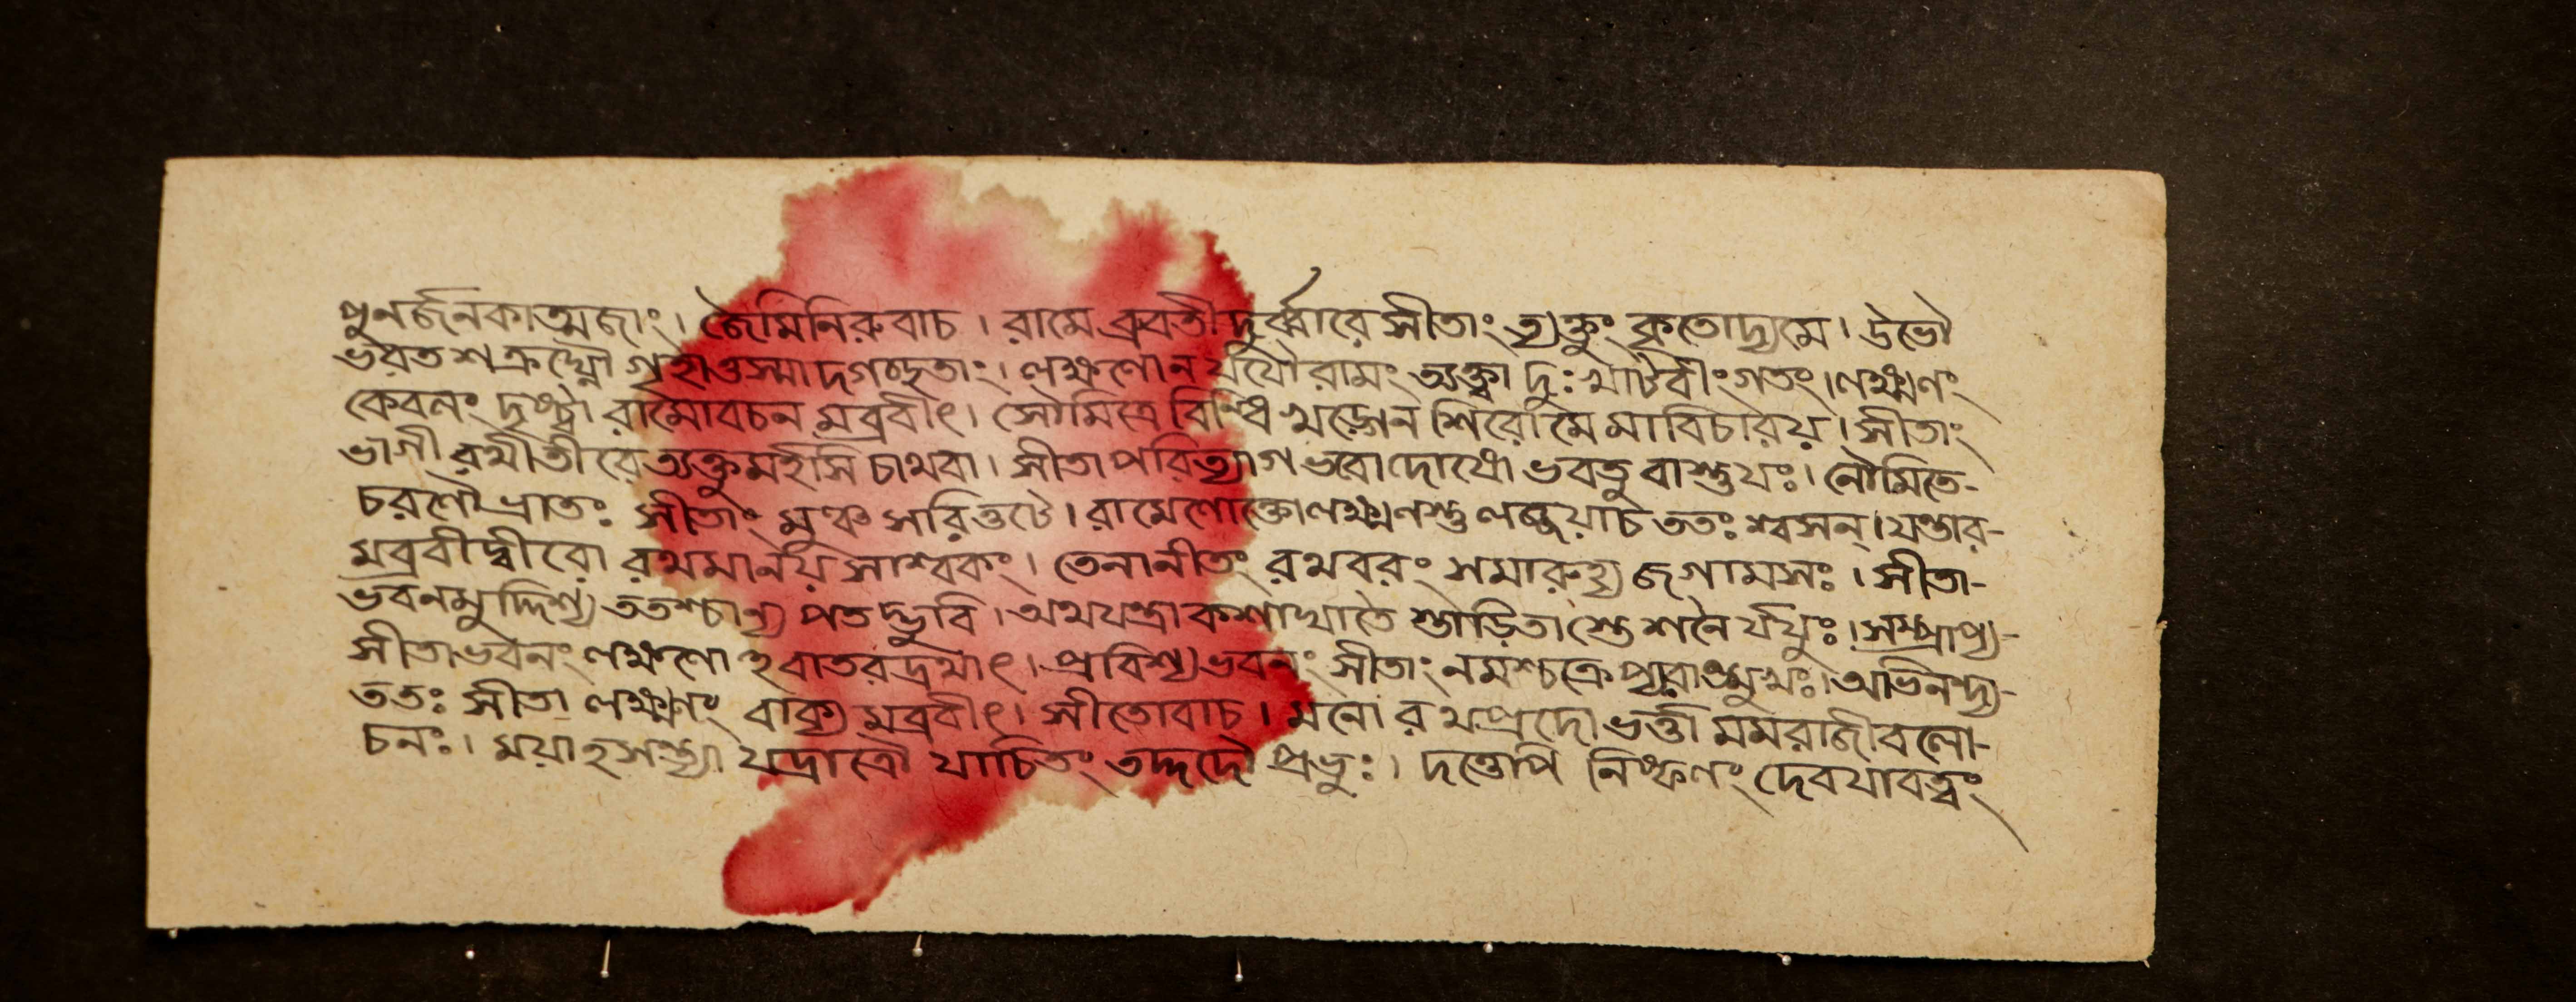 পুনর্জনকাত্মজাং। জৈমিনিরুবাচ। রামে ব্রুবতী দুর্ব্বারে সীতাং ত্যক্তুং কৃতোদ্যমে। উভৌ
ভরত শত্রুঘ্নৌ গৃহাত্তস্মাদগচ্ছতাং। লক্ষণোন র্যযৌ রামং ত্যক্ত্বা দুঃখাটবীং গতং। লক্ষ্মণং
কেবলং দৃষ্ট্বা রামোবচন মব্রবীৎ। সৌমিত্রে বিন্ধি খড্গেন শিরো মে মাবিচারয়। সীতাং
ভাগীরথীতীরে ত্যক্তুমর্হসি চাথবা। সীতাপরিত্যাগ ভবোদোষো ভবতু বাশুযঃ। নৌমিতে-
চরণৌ ভ্রাতঃ সীতাং মুঞ্চ সরিত্তটে। রামেণোক্তো লক্ষ্মণস্তু লজ্জয়াচ ততঃ শ্বসন্। যন্তার-
মব্রবীদ্বীরো রথমানয় সাশ্বকং। তেনানীতং রথবরং সমারুহ্য জগামসঃ। সীতা-
ভবনমুদ্দিশ্য ততশ্চান্য পতদ্ভুবি। অথযন্ত্রা কশাঘাতৈ স্তাড়িতাস্তে শনৈ র্যযুঃ। সম্প্রাপ্য-
সীতাভবনং লক্ষণো হবাতরদ্রথাৎ। প্রবিশ্য ভবনং সীতাং নমশ্চক্রেপ্যবাঙ্মুখঃ। অভিনন্দ্য-
ততঃ সীতা লক্ষ্মণং বাক্য মব্রবীৎ। সীতোবাচ। মনোরথপ্রদো ভর্ত্তা মমরাজীবলো-
চনঃ। ময়াহসন্ত্যা যদ্রাত্রৌ যাচিতং তদ্দদৌ প্রভুঃ। দত্তেপি নিষ্ফণং দেবযাবত্ত্বং